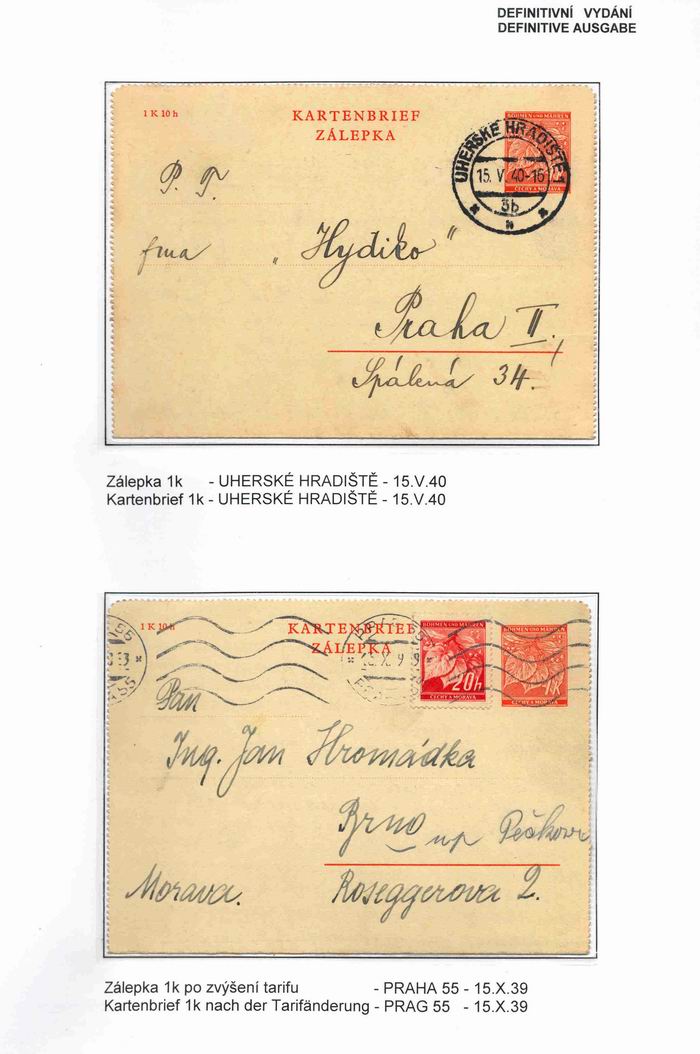 DEFINITIVNÍ VYDÁNÍ
DEFINITIVE AUSGABE
1 K 10 h
KARTENBRIEF
ZÁLEPKA
BÖHMEN UND MÄHREN
UHERSKÉ HRADIŠTĚ 1
15. V. 40-16
3b
ČECHY A MORAVA
P. T.
fma „Hydiko"
Praha II.,
Spálená 34.
Zálepka 1k - UHERSKÉ HRADIŠTĚ - 15.V.40
Kartenbrief 1k - UHERSKÉ HRADIŠTĚ - 15.V.40
1 K 10 h
KARTENBRIEF
ZÁLEPKA
BÖHMEN UND MÄHREN
20h
ČECHY A MORAVA
BÖHMEN UND MÄHREN
1K
ČECHY A MORAVA
Pan
Ing. Jan Hromádka
Brno
Morava. Roseggerova 2.
Zálepka 1k po zvýšení tarifu - PRAHA 55 - 15.X.39
Kartenbrief 1k nach der Tarifänderung - PRAG 55 - 15.X.39